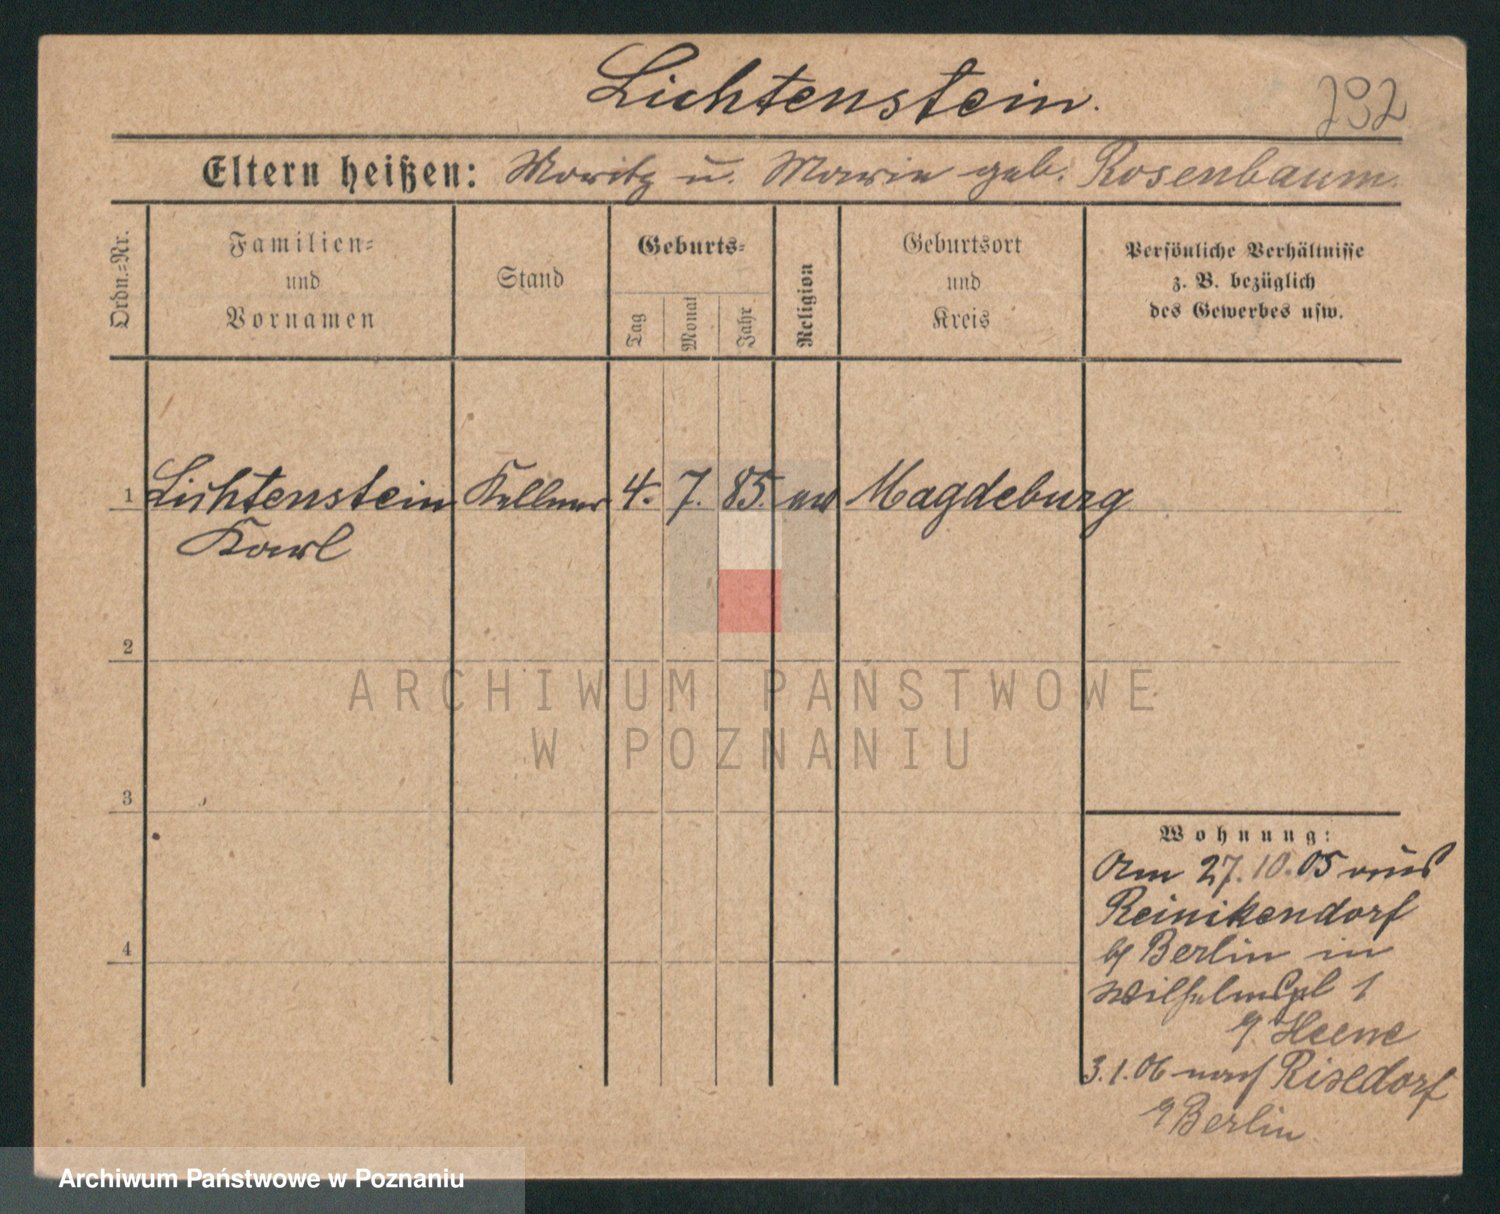 Lichtenstein.
292
Eltern heißen: Moritz u. Marie geb. Rosenbaum.
Ordn.-Nr.
Familien-
und
Vornamen
Stand
Geburts-
Tag
Monat
Jahr
Religion
Geburtsort
und
Kreis
Persönliche Verhältnisse
z. B. bezüglich
des Gewerbes usw.
1 Lichtenstein Kellner 4. 7. 85. Magdeburg
Karl
2
ARCHIWUM PAŃSTWOWE
W POZNANIU
3
Wohnung:
Am 27.10.05 aus
Reinikendorf
b/ Berlin in
Wilhelmspl 1
b/ Heene
4
3.1.06 nach Rixdorf
b/ Berlin
Archiwum Państwowe w Poznaniu